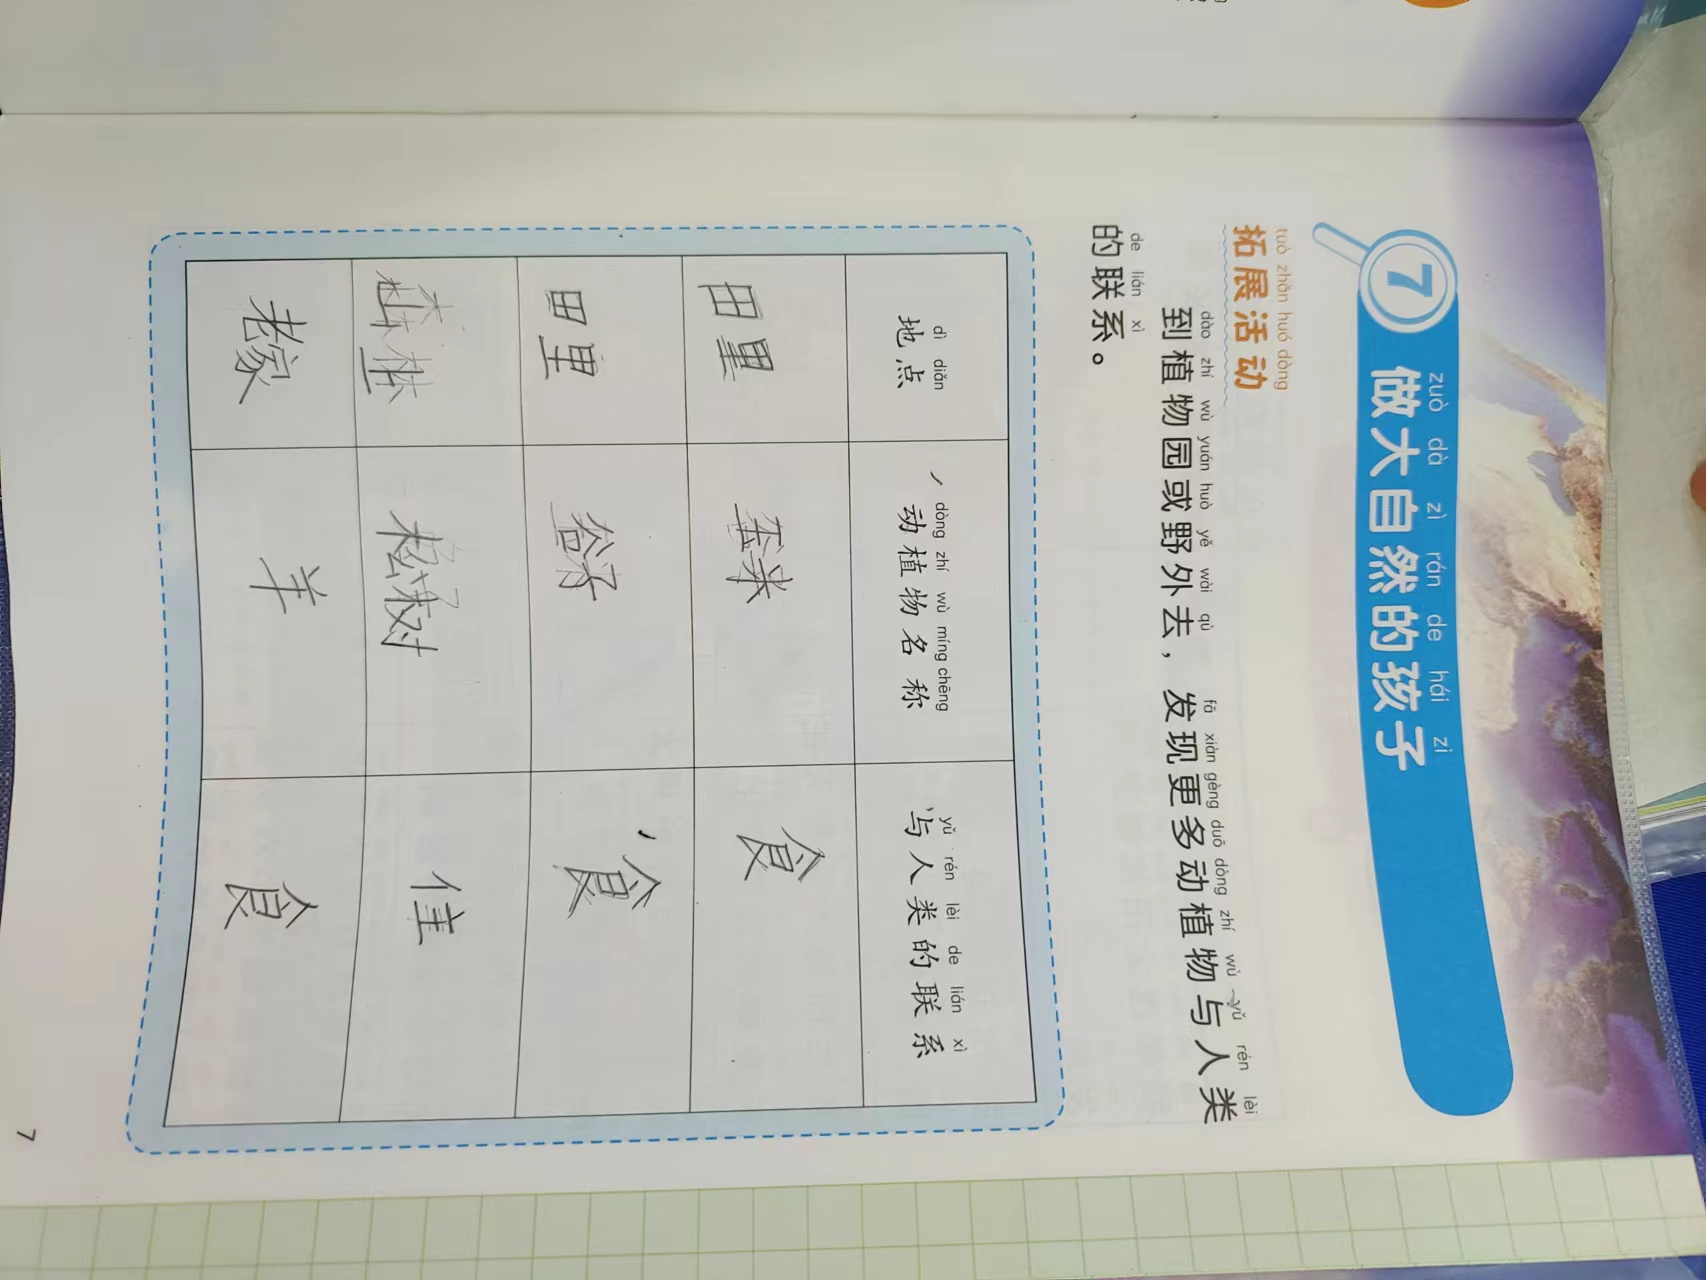 7
zuò dà zì rán de hái zi
做大自然的孩子
tuò zhǎn huó dòng
拓展活动
dào zhí wù yuán huò yě wài qù fā xiàn gèng duō dòng zhí wù yǔ rén lèi
到植物园或野外去，发现更多动植物与人类
de lián xì
的联系。
dì diǎn dòng zhí wù míng chēng yǔ rén lèi de lián xì
地点 动植物名称 与人类的联系
田里 食
田里 食
松树 住
老家 羊 食
7